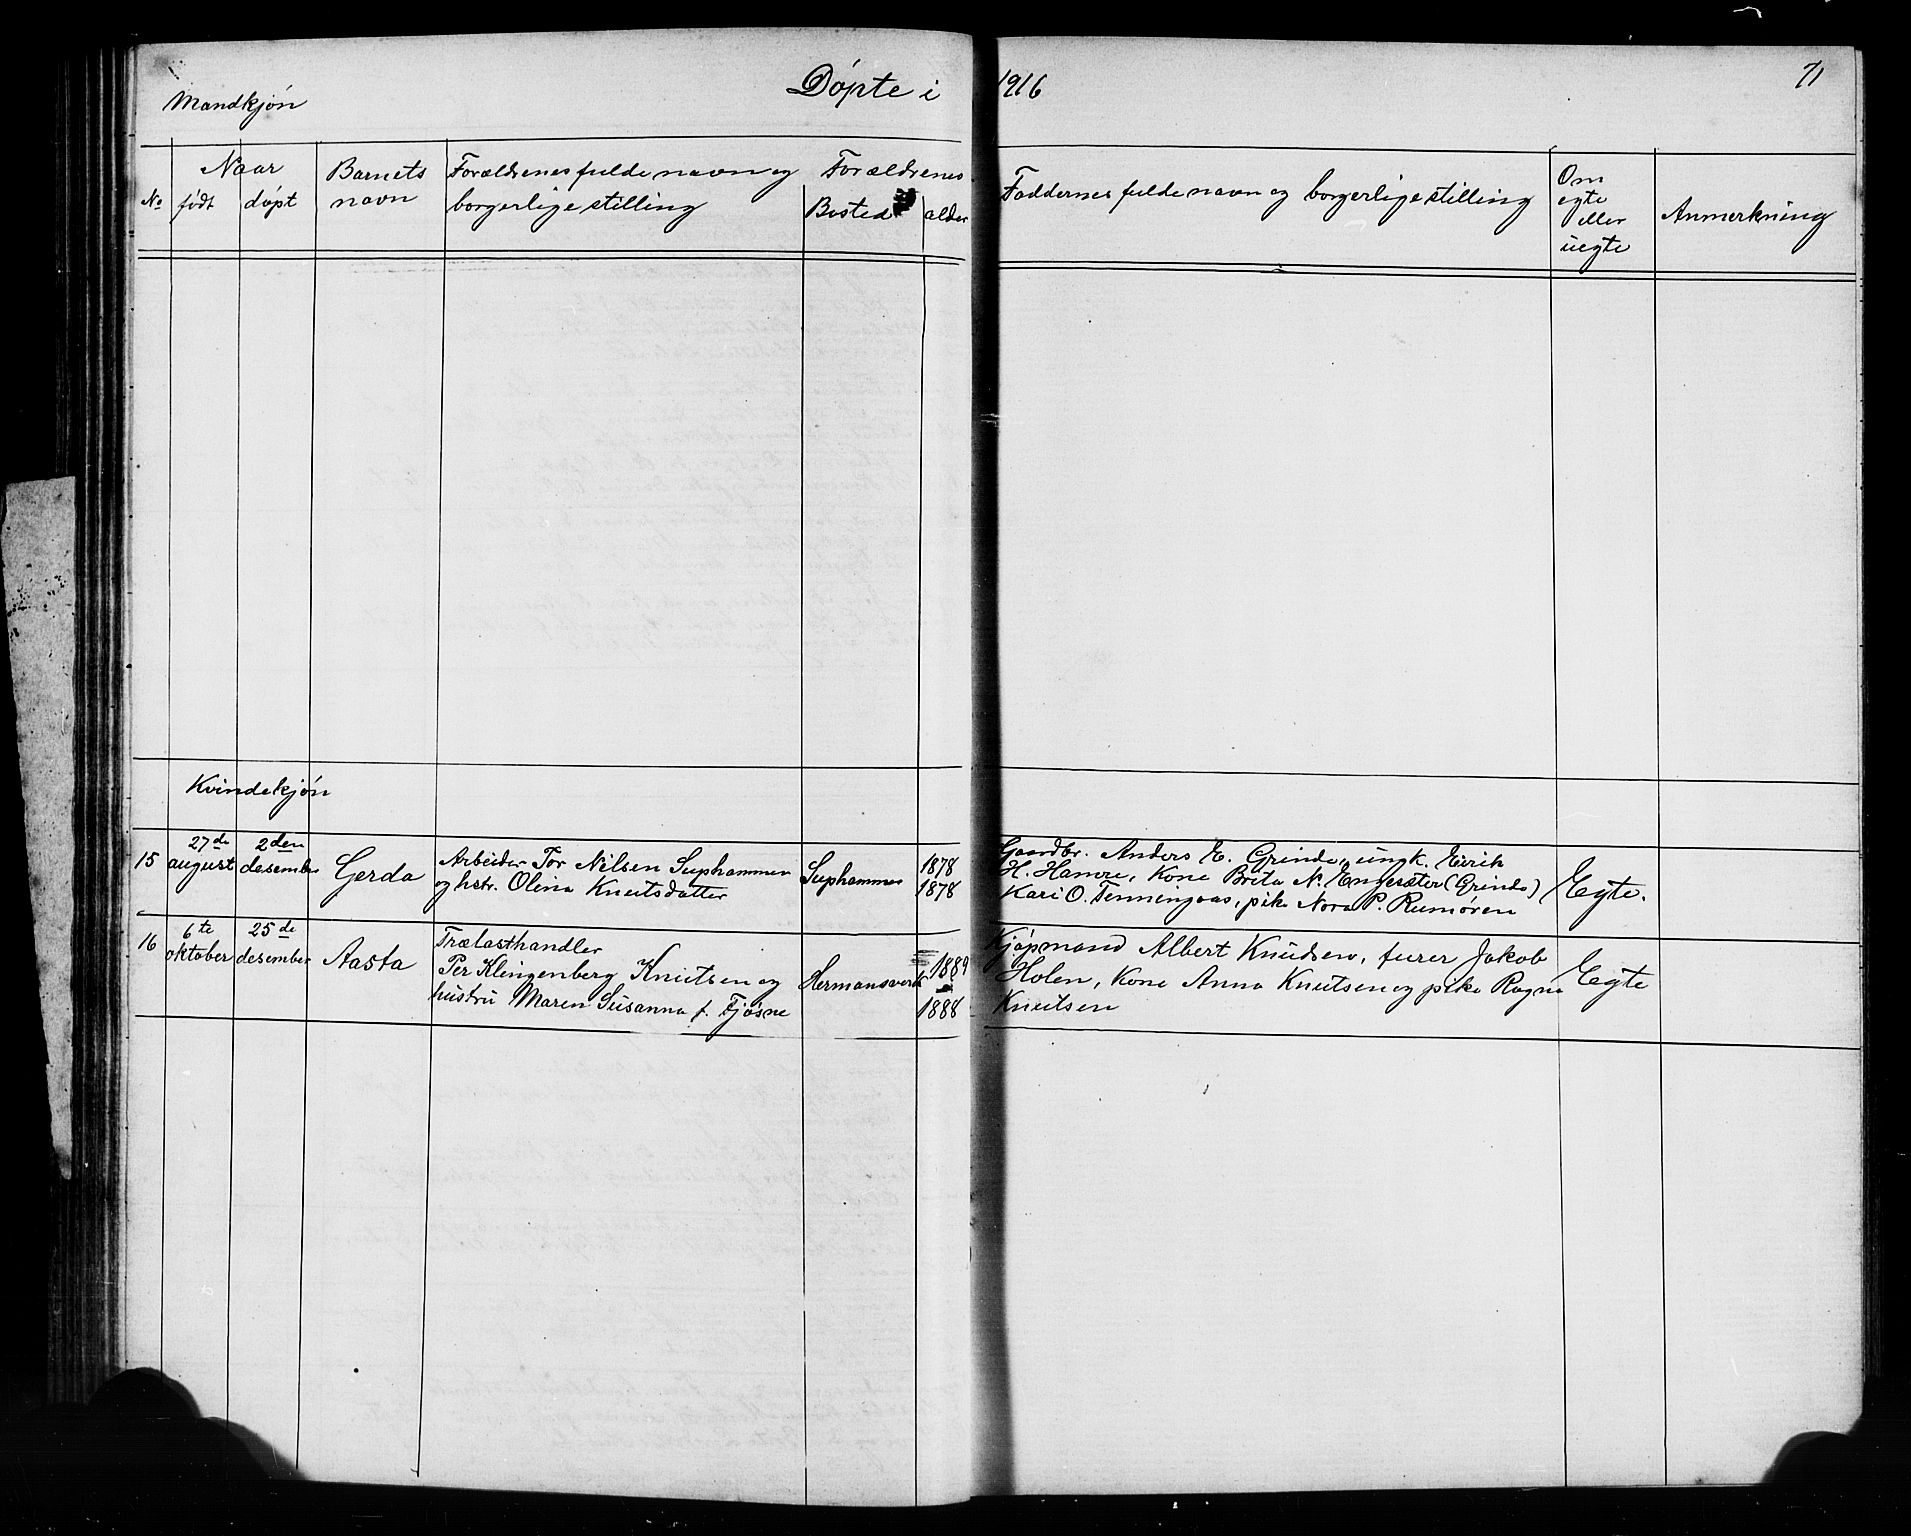 Døpte i 1916
71
Mandkjøn
No
Naar
født
døpt
Barnets
navn
Forældrenes fulde navn og
borgerlige stilling
Forældrenes
Bosted
alder
Faddernes fulde navn og borgerlige stilling
Om
egte
eller
uegte
Anmerkning
Kvindekjøn
15
27de
august
2den
desember
Gerda
Arbeider Tor Nilsen Suphammer
og hstr. Olina Knutsdatter
Suphammer
1878
1878
Gaardbr. Anders E. Grinde, ungk. Eirik
H. Hamre, Kone Brita N. Engesæter (Grinde)
Kari O. Tenningaas, pike Nora P. Rumøren
Egte.
16
6te
oktober
25de
desember
Aasta
Trælasthandler
Per Klingenberg Knutsen og
hustru Maren Susanna f. Fjøsne
Hermansverk
1889
1888
Kjøpmand Albert Knudsen, furer Jakob
Holen, Kone Anna Knutsen og pike Ragna
Knutsen
Egte